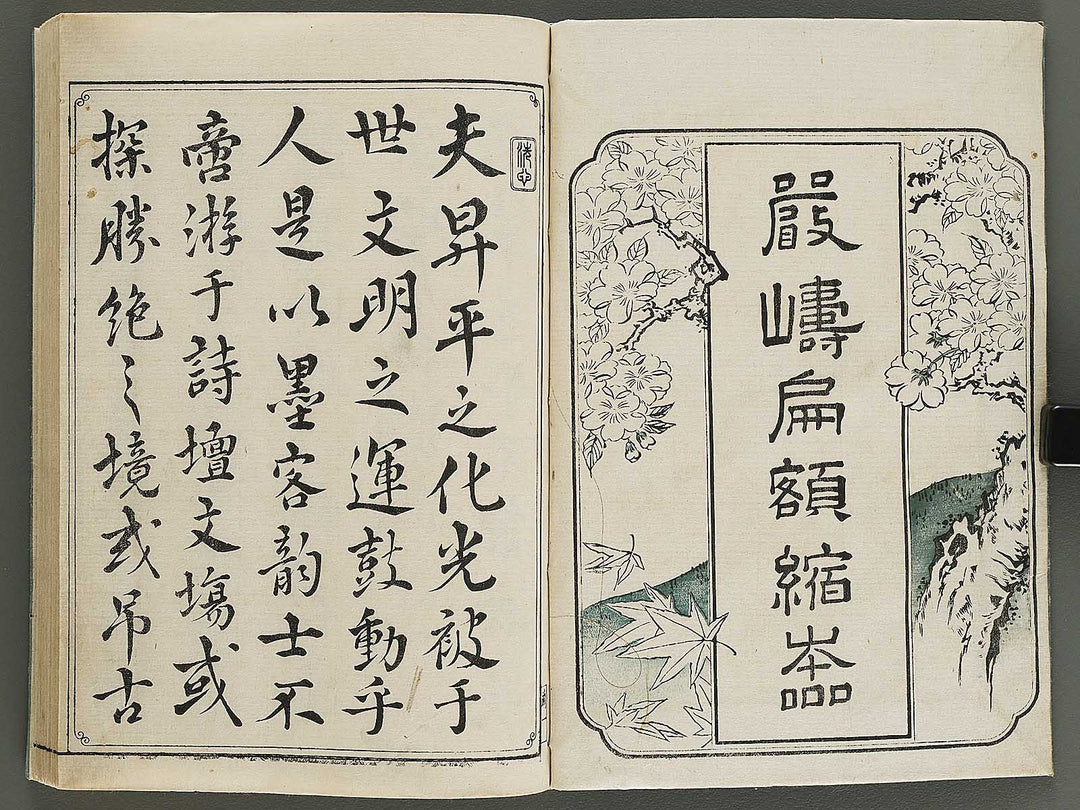 嚴嶹扁額縮夲
夫昇平之化光被于
世文明之運鼓動乎
人是以墨客韵士不
啻游于詩壇文塲或
探勝絶之境或吊古